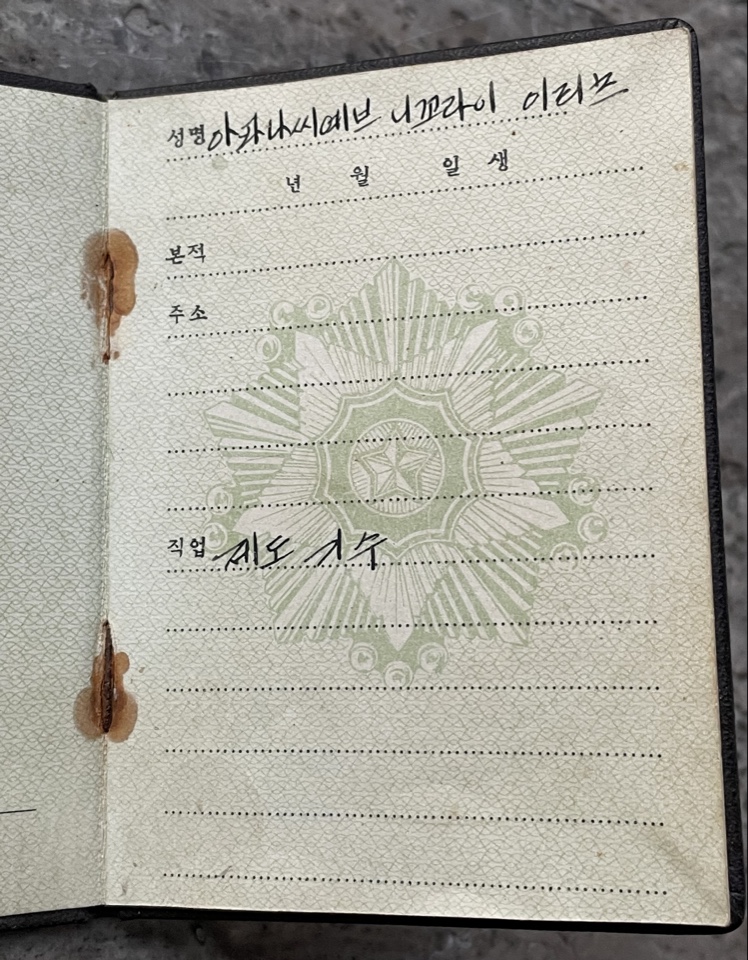 성명 아파나씨예브 니꼬라이
년 월 일 생
본적
주소
직업 제도 기수